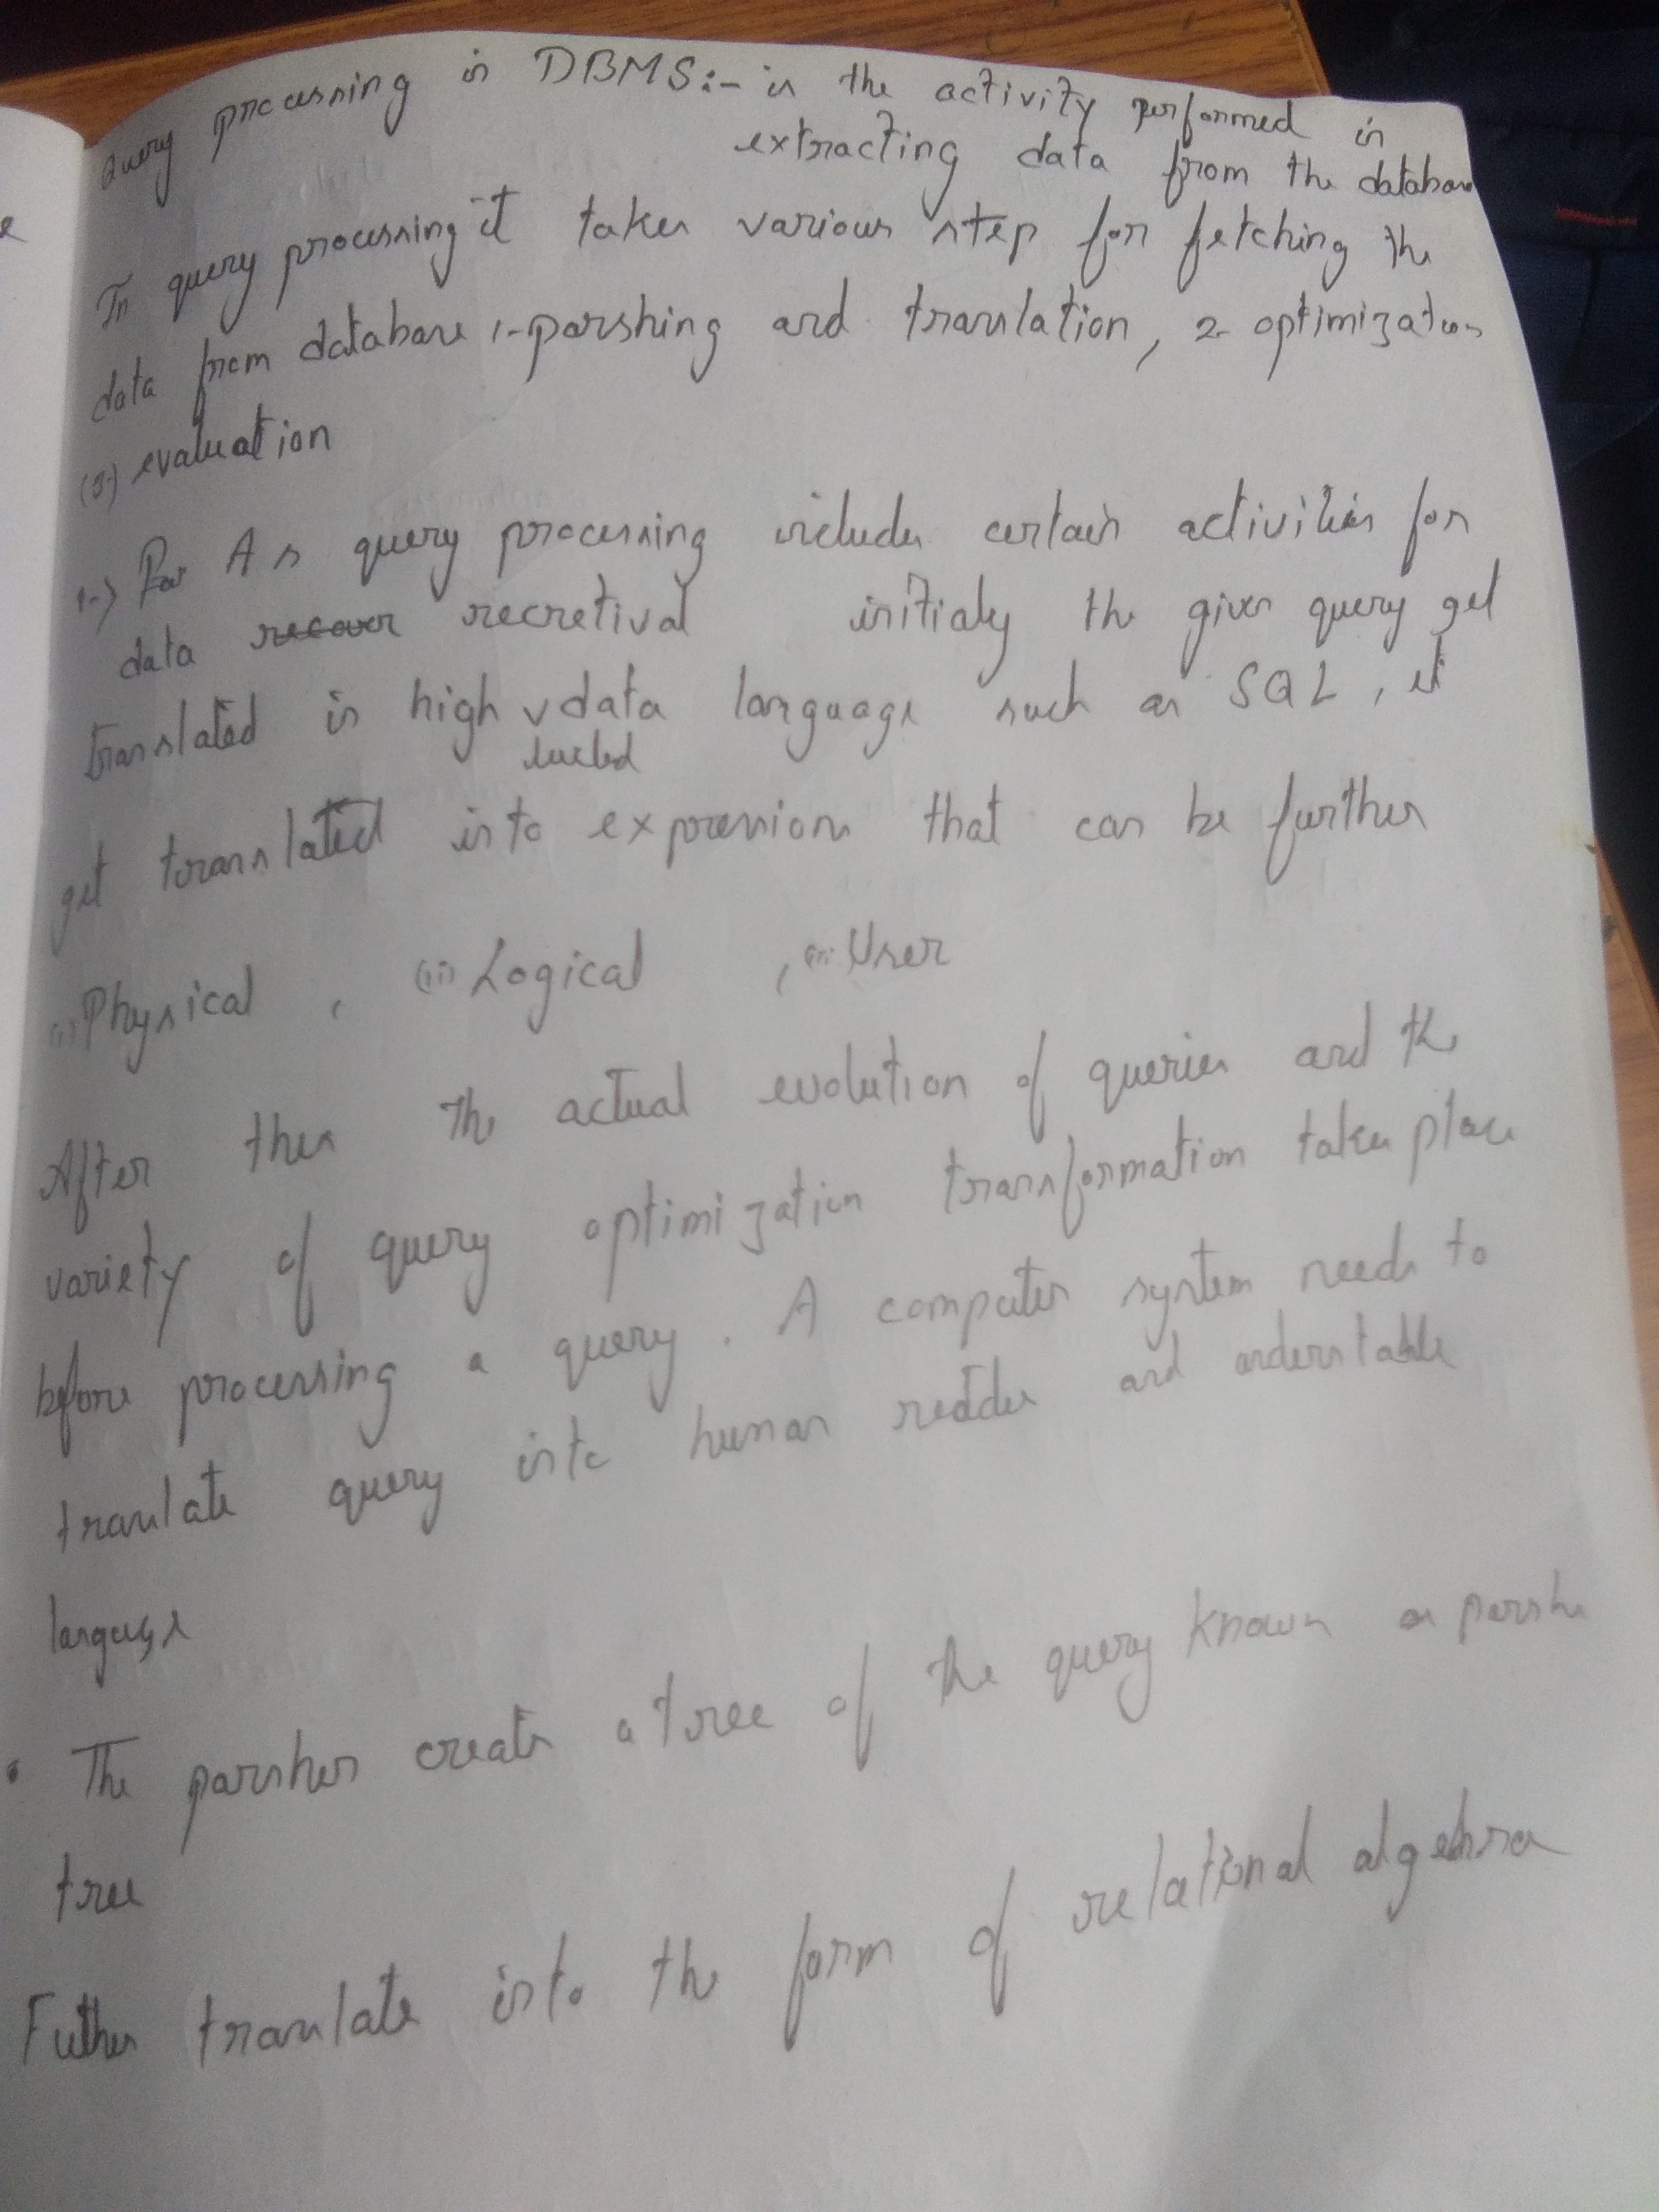 Query processing in DBMS:- is the activity performed in
extracting data from the database
In query processing it takes various step for fetching the
data from database 1-parshing and translation, 2- optimization
(3-) evaluation
1-) As query processing includes certain activities for
data recover recretival initialy the given query get
translated in high data language such as SQL, it
get translated into expression that can be further
(i) Physical, (ii) Logical, (iii) User
After then the actual evolution of queries and the
variety of query optimization transformation takes place
before processing a query. A computer system needs to
translate query into human and
language
• The parsher create a tree of the query known as parshe
tree
Futher translate into the form of relational algebra